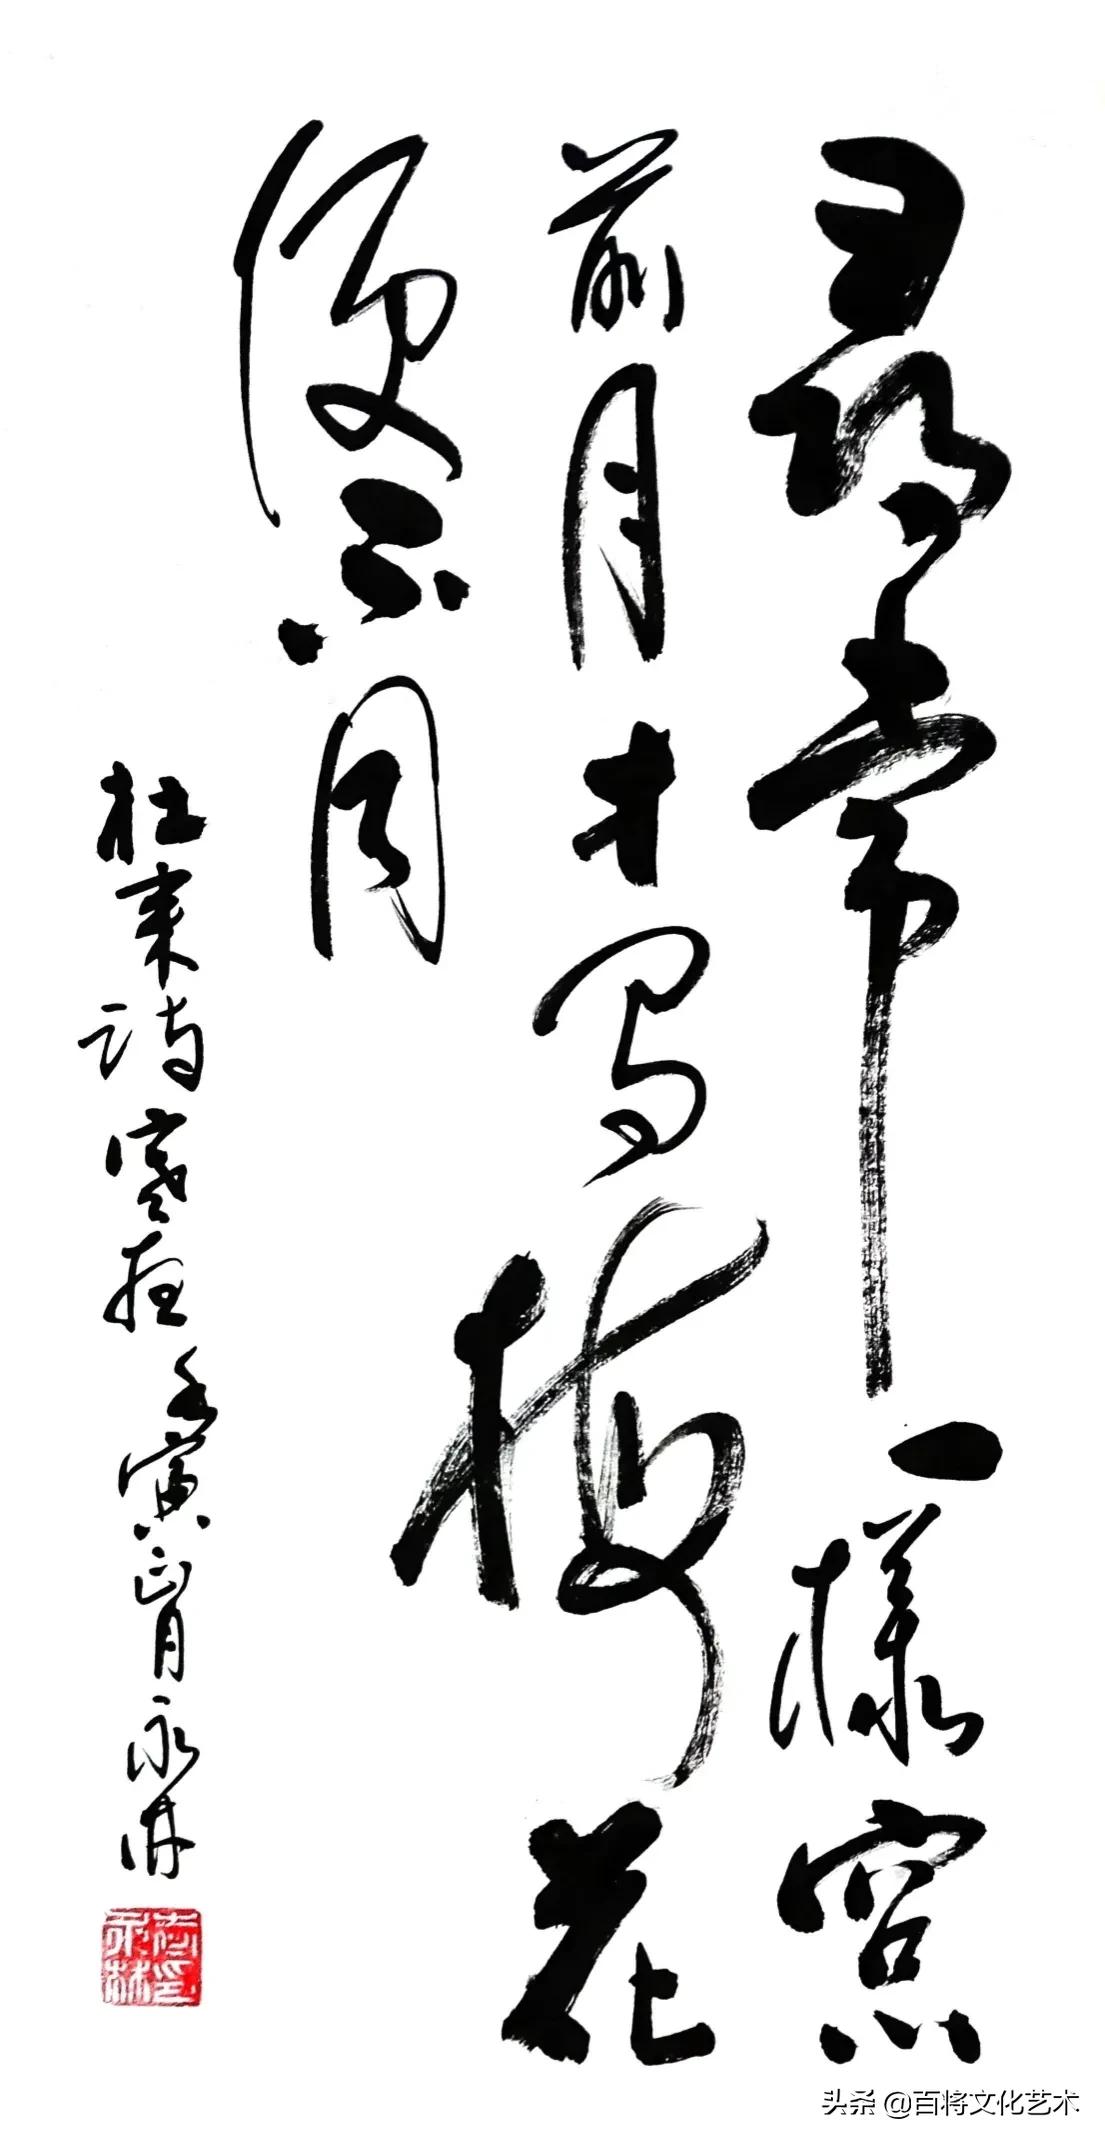 尋常一樣窓
前月才有梅花
便不同
杜耒诗寒夜壬寅正月永林
头条 @百将文化艺术